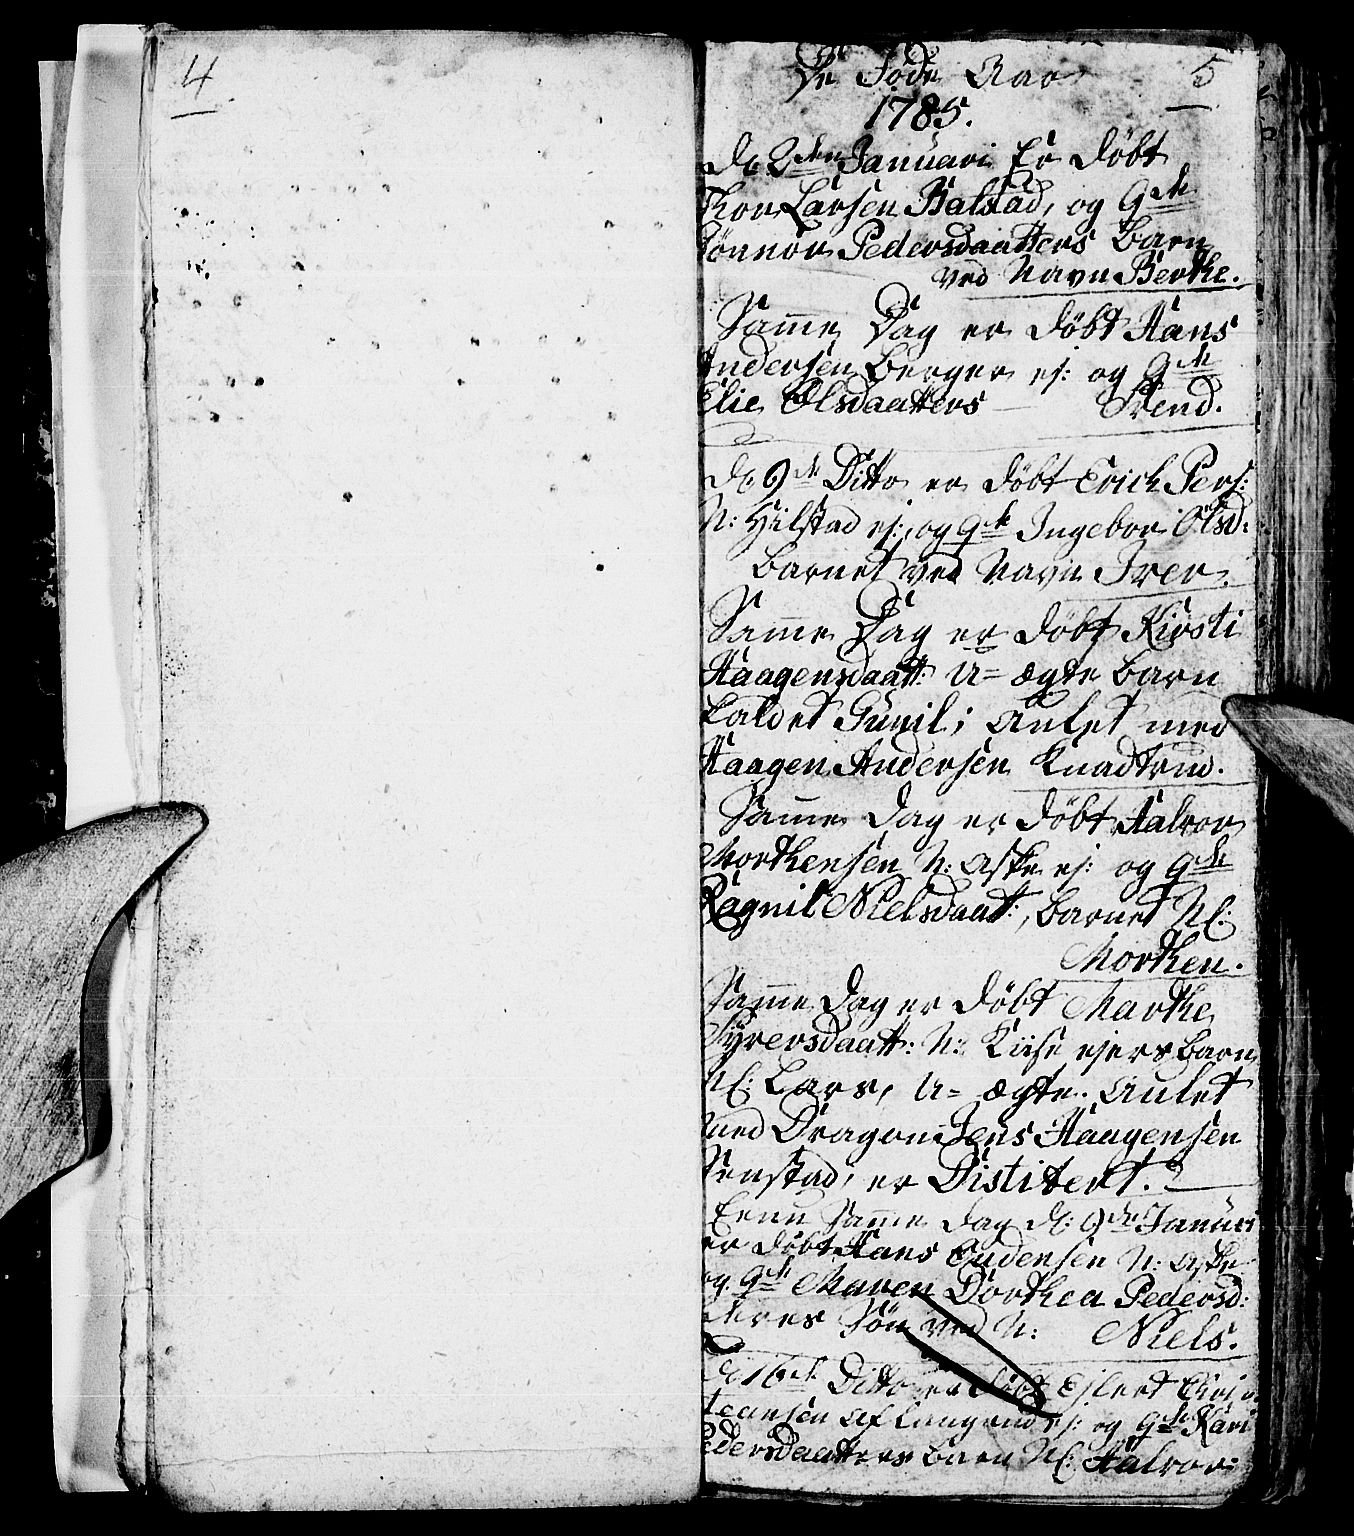 4
5
De Føde Aar
1785.
d. 2den Januari Er døbt
Thor Larsen Balstad, og gde
Gunnor Pedersdaatters barn
ved Navn Berthe.
Samme Dag er døbt Hans
Andersen berger ej: og gde
Elie Olsdaatters Svend.
d. 9de Ditto er døbt Erich Pers:
N: Hilstad ej:, og gde Ingebor Olsd:
barnet ved Navn Iver.
Samme Dag er døbt Kirsti
Haagensdaatt: U=ægte barn
kaldet Gunil; Aulet med
Haagen Andersen Knadtrud.
Samme Dag er døbt Halvor
Morthensen N: Aske ej: og gde
Ragnil Nielsdaat:, barnet Nl:
Morthen.
Samme Dag er døbt Marthe
Syversdaatt: N: ejers barn
Nl: Lars, U=ægte. Aulet
med Dragon Jens Haagensen
Senstad, er Distitert.
Ennu Samme Dag d: 9de Januari
er døbt Hans Endersen N: Aske
og gde Maren Dorthea Pedersd:
deres Søn ved N: Niels.
d. 16de Ditto er døbt Ejlert Chris
teansen af Langerud ej: og gde Kari
Pedersdaatters barn Nl: Halvor: